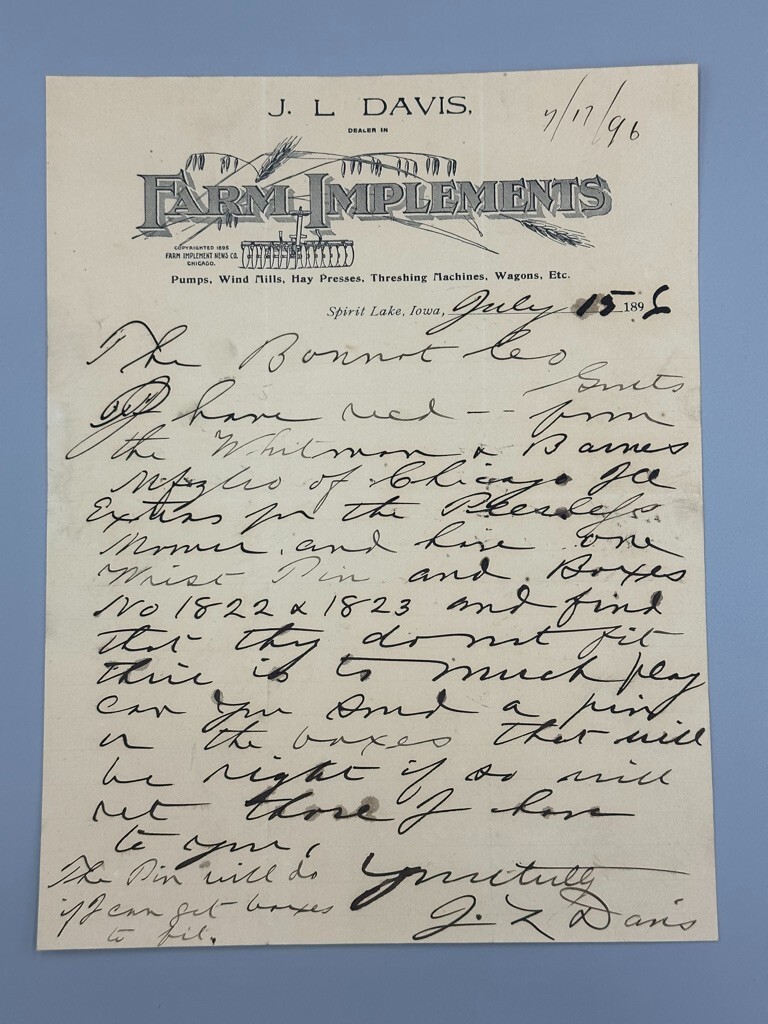 J. L DAVIS,
7/17/96
DEALER IN
FARM IMPLEMENTS
COPYRIGHTED 1895
FARM IMPLEMENT NEWS CO.
CHICAGO.
Pumps, Wind Mills, Hay Presses, Threshing Machines, Wagons, Etc.
Spirit Lake, Iowa, July 15 1896
The Bonnot Co
Gents
I have recd -- from
the Whitman & Barnes
Mfg Co of Chicago Ill
Extras for the Peerless
Mower and have one
Wrist Pin and Boxes
No 1822 & 1823 and find
that thy do not fit
there is to much play
can you send a pin
or the boxes that will
be right if so will
ret those I have
to you,
Yours truly
J. L Davis
The Pin will do
if I can get boxes
to fit.